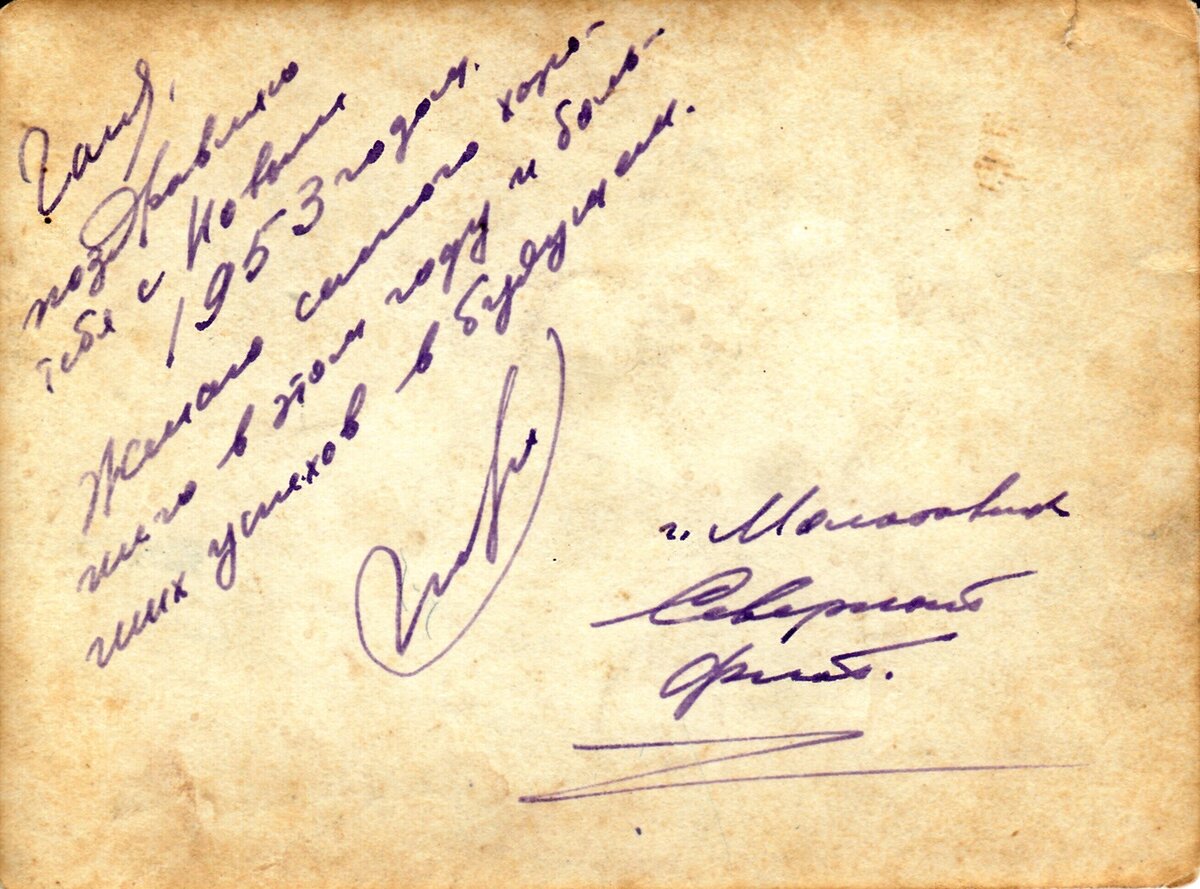 Галя,
поздравляю
тебя с Новым
1953 годом.
Желаю самого хоро-
шего в этом году и боль-
ших успехов в будущем.
г. Молотовск
Северный
флот.